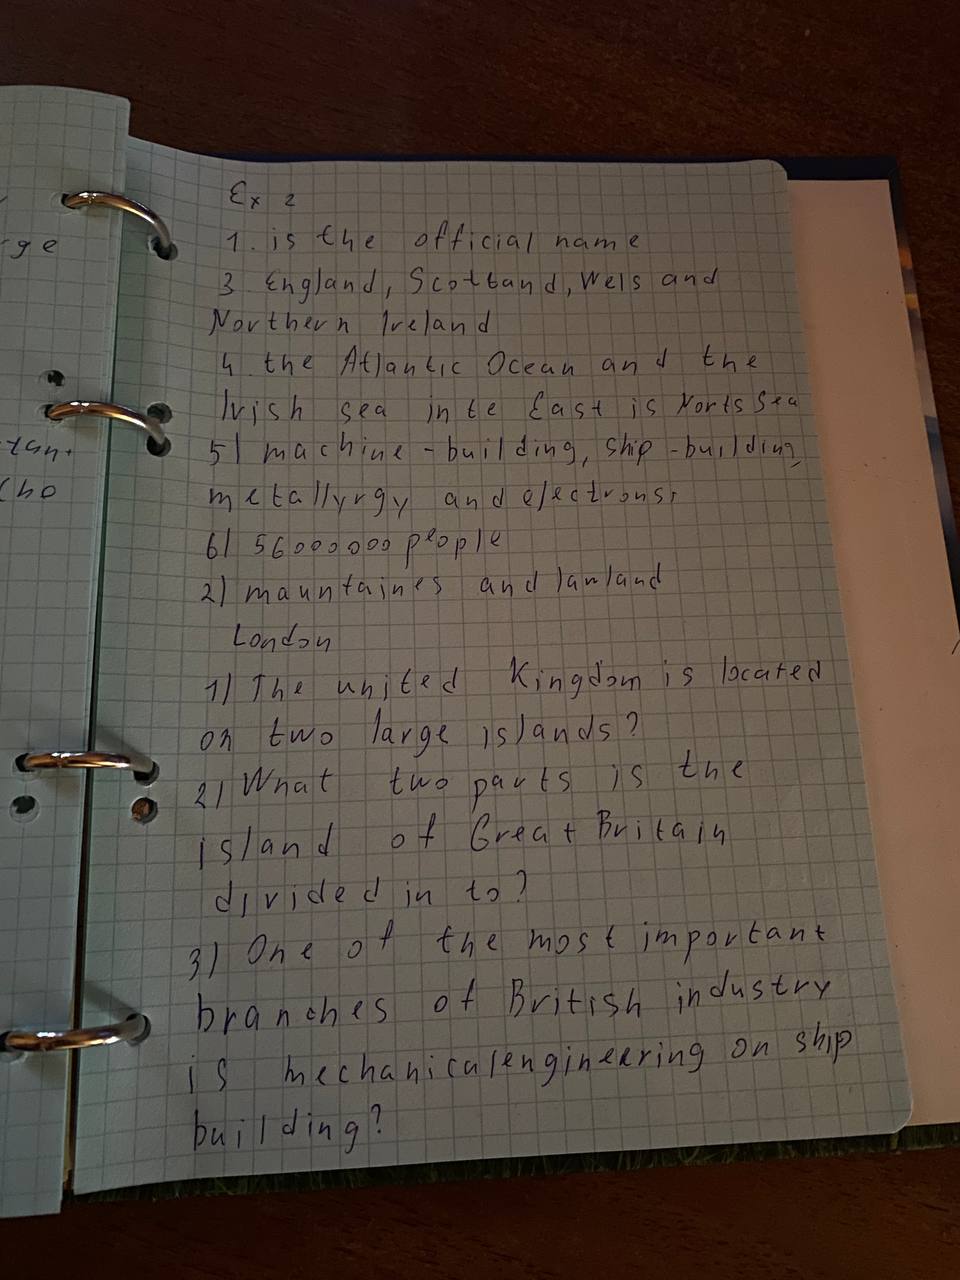 rge
Ex 2
1. is the official name
3 England, Scotland, Wels and
Northern Ireland
4. the Atlantic Ocean and the
Irish sea in te East is Norts Sea
5) machine-building, ship-building,
metallyrgy and
6) 56000000 people
2) mauntaines and lawland
London
1) The united Kingdom is located
on two large islands?
2) What two parts is the
island of Great Britain
divided in to?
3) One of the most important
branches of British industry
is mechanicalengineering on ship
building?